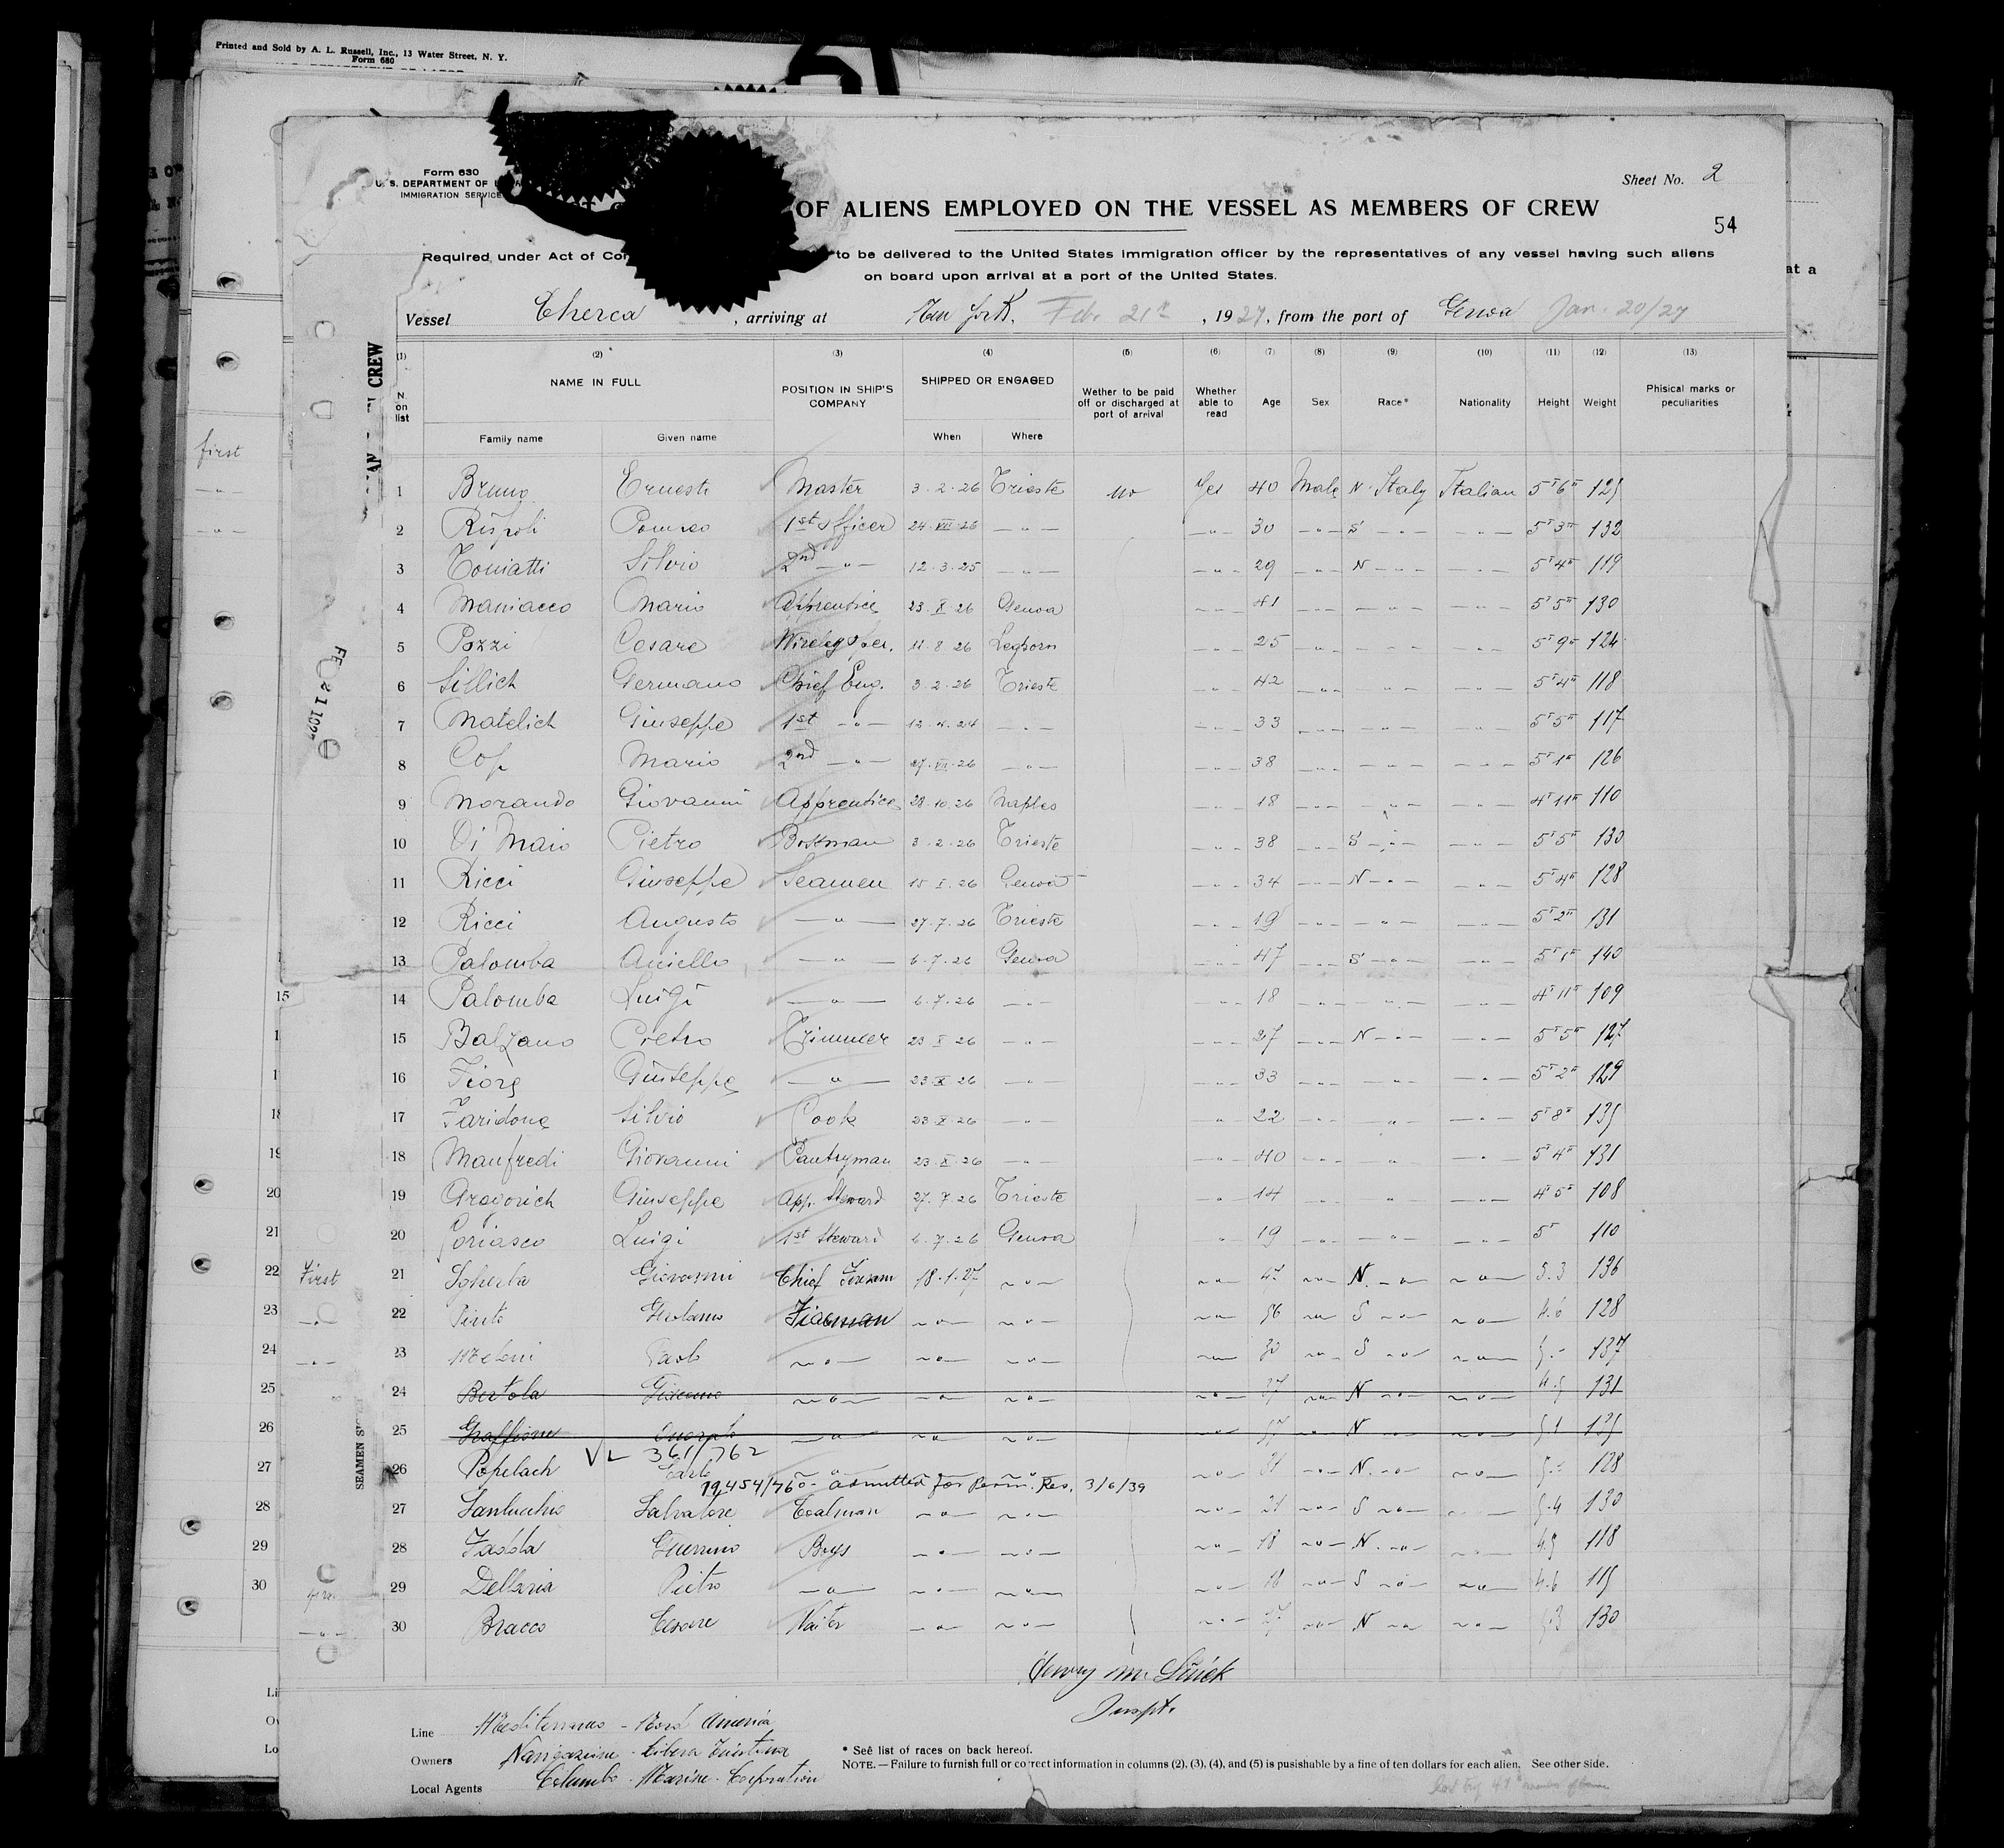 Printed and Sold by A. L. Russell, Inc., 13 Water Street, N. Y.
Form 680
Form 630
U. S. DEPARTMENT OF
IMMIGRATION SERVICE
Sheet No. 2
OF ALIENS EMPLOYED ON THE VESSEL AS MEMBERS OF CREW
54
Required under Act of Con to be delivered to the United States immigration officer by the representatives of any vessel having such aliens
on board upon arrival at a port of the United States.
at a
Vessel Cherca, arriving at New York, Feb. 21st, 1927, from the port of Genoa Jan. 20/27
(1) (2) (3) (4) (5) (6) (7) (8) (9) (10) (11) (12) (13)
N. on list NAME IN FULL POSITION IN SHIP'S COMPANY SHIPPED OR ENGAGED Wether to be paid off or discharged at port of arrival Whether able to read Age Sex Race* Nationality Height Weight Phisical marks or peculiarities
Family name Given name When Where
first
1 Bruno Ernesto Master 3.2.26 Trieste no Yes 40 Male N. Italy Italian 5'6" 125
2 Rispoli Pompeo 1st officer 24.VII.26 -"- -"- 30 -"- S -"- -"- 5'3" 132
3 Toniatti Silvio 2nd -"- 12.3.25 -"- -"- 29 -"- N -"- -"- 5'4" 119
4 Maniacco Mario Apprentice 23.X.26 Genoa -"- 41 -"- -"- -"- 5'5" 130
5 Pozzi Cesare Wireless Oper. 11.8.26 Leghorn -"- 25 -"- -"- -"- 5'9" 124
6 Sillich Germano Chief Eng. 3.2.26 Trieste -"- 42 -"- -"- -"- 5'4" 118
7 Matelich Giuseppe 1st -"- 12.4.24 -"- -"- 33 -"- -"- -"- 5'5" 117
8 Cop Mario 2nd -"- 27.VII.26 -"- -"- 38 -"- -"- -"- 5'1" 126
9 Morando Giovanni Apprentice 28.10.26 Naples -"- 18 -"- -"- -"- 4'11" 110
10 Di Maio Pietro Bottman 3.2.26 Trieste -"- 38 -"- S -"- -"- 5'5" 130
11 Ricci Giuseppe Seamen 15.X.26 Genoa -"- 34 -"- N -"- -"- 5'4" 128
12 Ricci Augusto -"- 27.7.26 Trieste -"- 19 -"- -"- -"- 5'2" 131
13 Palomba Aniello -"- 6.7.26 Genoa -"- 47 -"- S -"- -"- 5'1" 140
14 Palomba Luigi -"- 6.7.26 -"- -"- 18 -"- -"- -"- 4'11" 109
15 Balzano Pietro Trimmer 23.X.26 -"- -"- 27 -"- N -"- -"- 5'5" 127
16 Fiore Giuseppe -"- 23.X.26 -"- -"- 33 -"- -"- -"- 5'2" 129
17 Faridone Silvio Cook 23.X.26 -"- " 22 -"- " -"- 5'8" 135
18 Manfredi Giovanni Pantryman 23.X.26 -"- -"- 40 -"- " -"- 5'4" 131
19 Gregorich Giuseppe App. Steward 27.7.26 Trieste " 14 -"- " -"- 4'5" 108
20 Coriasco Luigi 1st Steward 6.7.26 Genoa " 19 -"- -"- -"- 5' 110
First 21 Sgherla Giovanni Chief Fireman 18.1.27 -"- -"- 47 -"- N. -"- -"- 5.3 136
22 Pinto Girolamo Fireman -"- -"- -"- 56 -"- S -"- -"- 4.6 128
23 Meloni Paolo -"- -"- -"- -"- 30 -"- S -"- -"- 5.- 137
24 Bertola Giacomo -"- -"- -"- -"- 37 -"- N -"- -"- 4.5 131
25 Graffione Onorato -"- -"- -"- -"- 37 -"- N -"- -"- 5.1 135
VL 361/762
26 Popelach Carlo -"- -"- -"- -"- 31 -"- N. -"- -"- 5.- 128
19454/760 - admitted for Perm. Res. 3/6/39
27 Santucchio Salvatore Coalman -"- -"- -"- 21 -"- S -"- -"- 5.4 130
28 Fadda Guerrino Boys -"- -"- -"- 18 -"- N. -"- -"- 4.5 118
29 Dellaria Pietro -"- -"- -"- -"- 16 -"- S -"- -"- 4.6 115
30 Bracco Cesare Waiter -"- -"- -"- 27 -"- N -"- -"- 5.3 130
Inspt.
Line Mediterraneo - Nord America
Owners Navigazione Libera Triestina
Local Agents Columbo Marine Corporation
* See list of races on back hereof.
NOTE.—Failure to furnish full or correct information in columns (2), (3), (4), and (5) is pusishable by a fine of ten dollars for each alien. See other side.